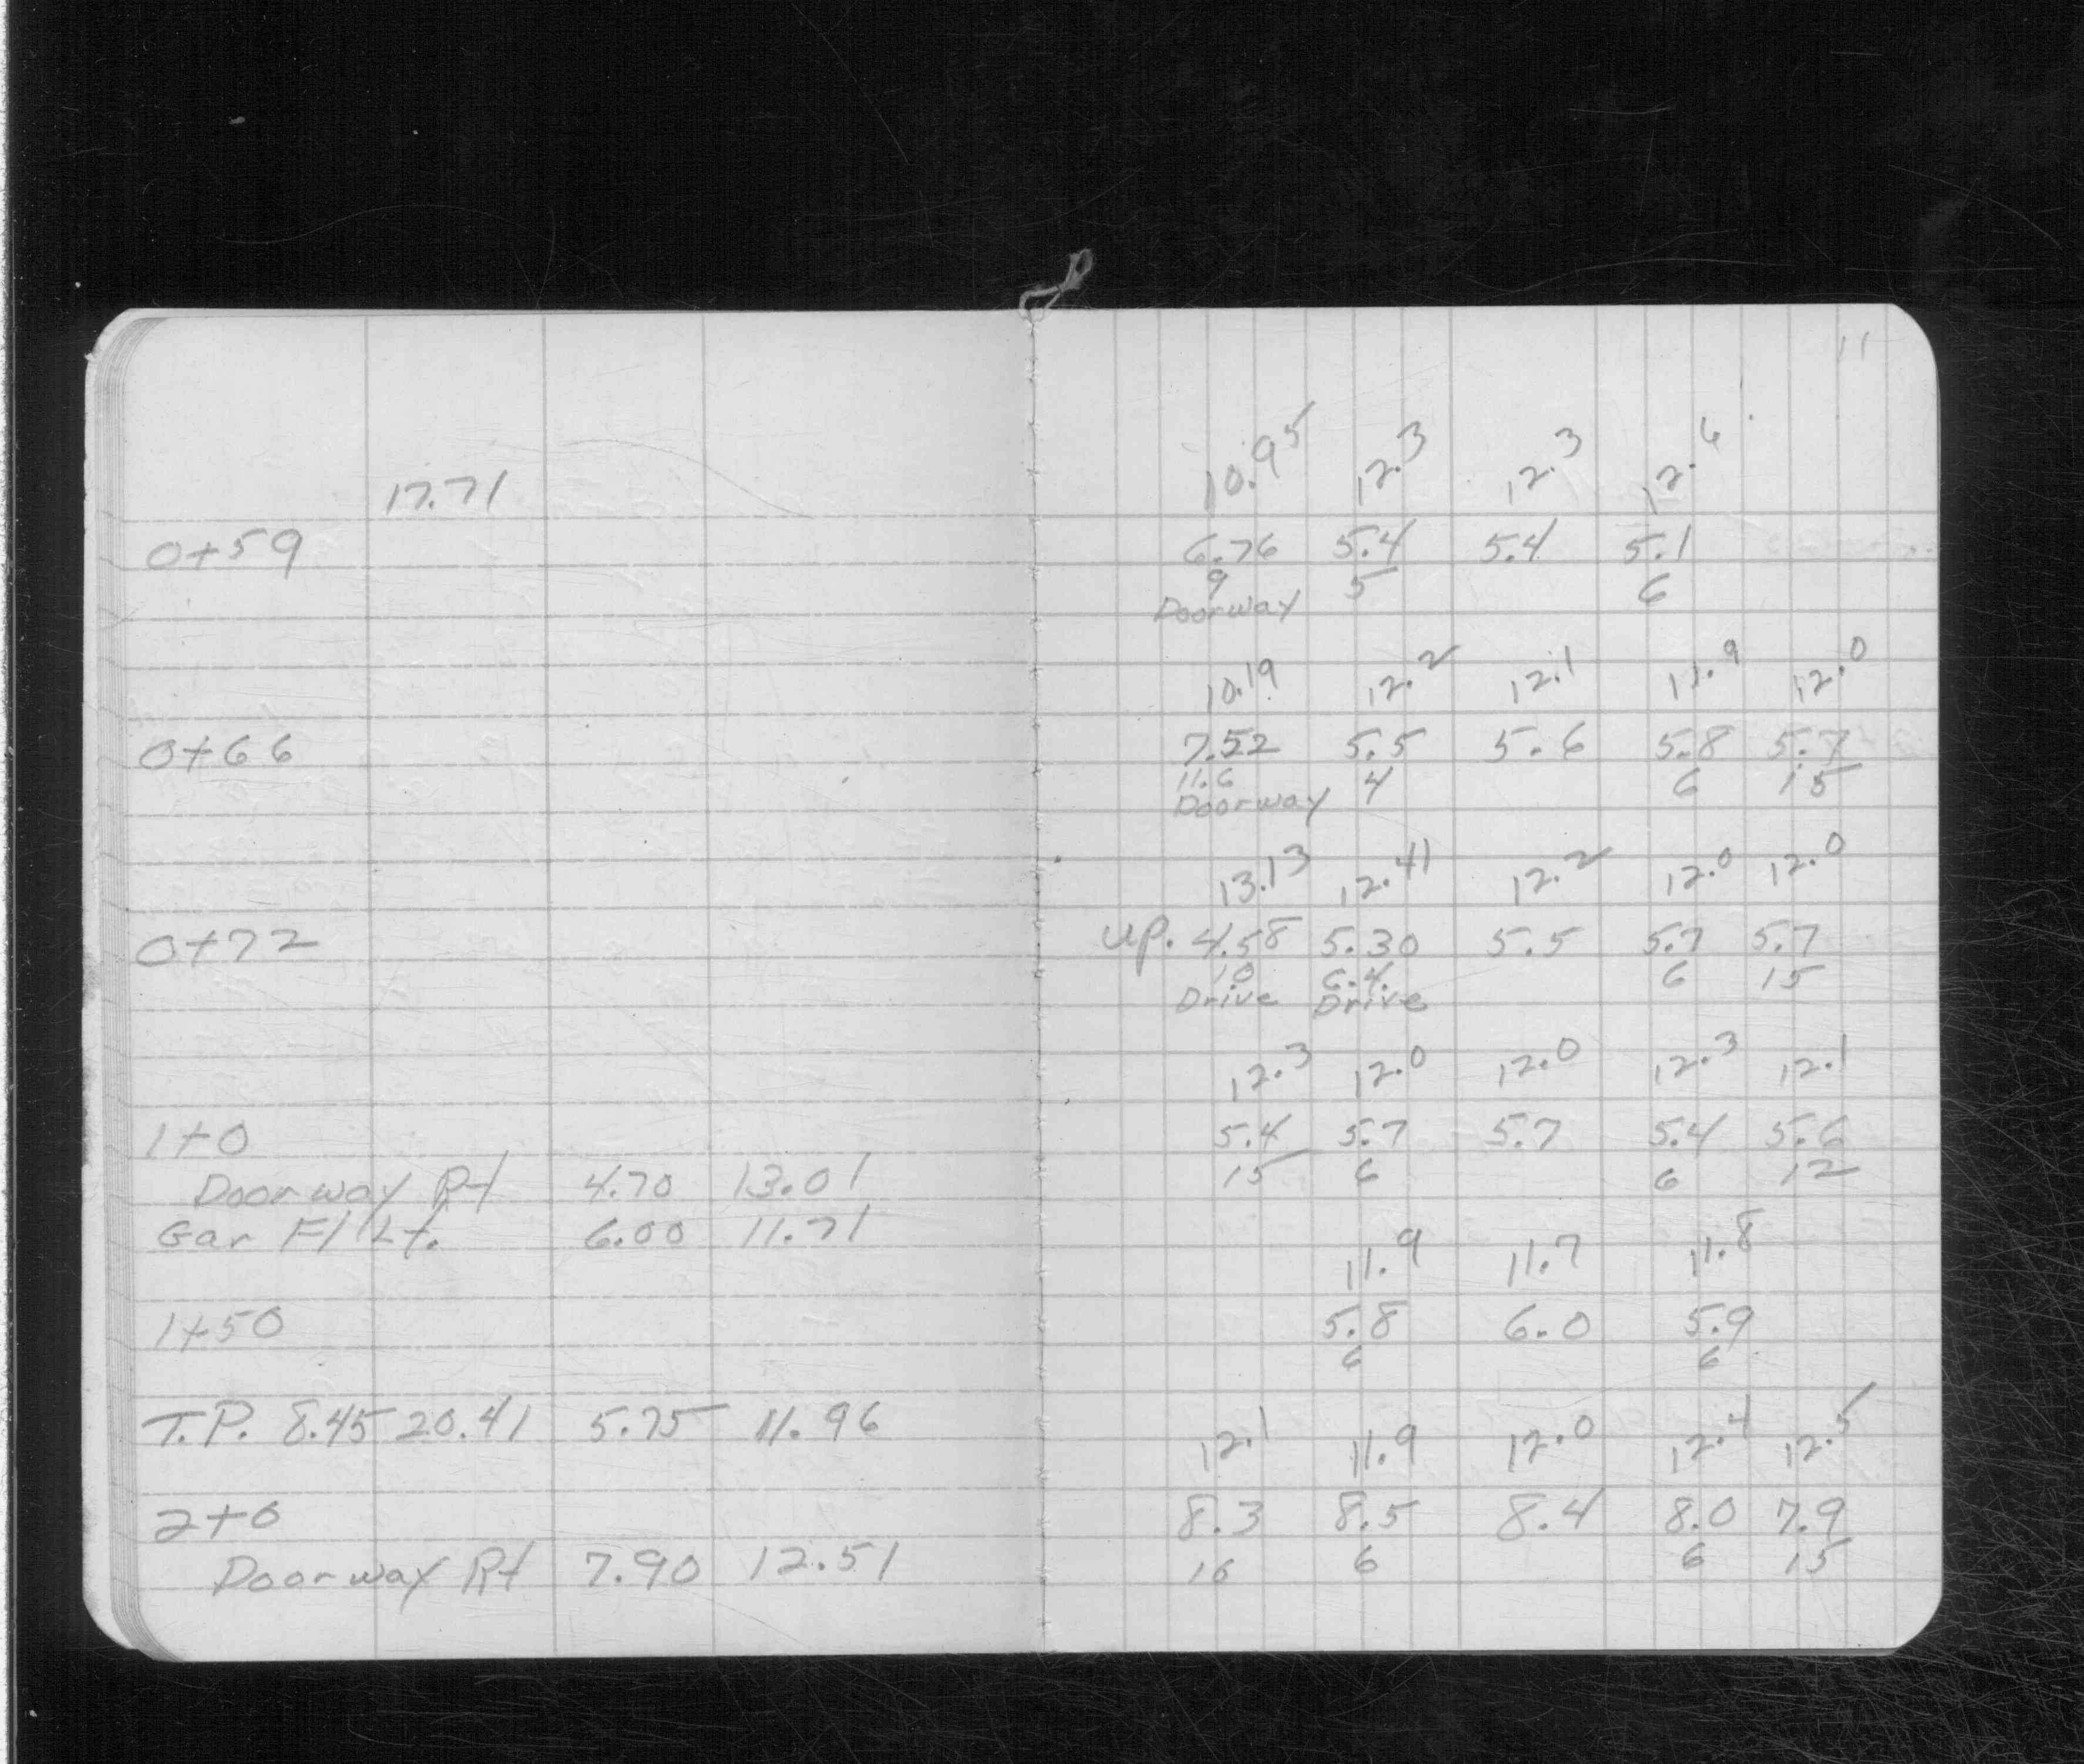 11
10.95 12.3 12.3 12.6
17.71
0+59 6.76 5.4 5.4 5.1
9 5 6
Doorway
10.19 12.2 12.1 11.9 12.0
0+66 7.52 5.5 5.6 5.8 5.7
11.6 4 6 15
Doorway
13.13 12.41 12.2 12.0 12.0
0+72 up. 4.58 5.30 5.5 5.7 5.7
10 6.4 6 15
Drive Drive
12.3 12.0 12.0 12.3 12.1
1+0 5.4 5.7 5.7 5.4 5.6
Doorway Rt 4.70 13.01 15 6 6 12
Gar Fl Lt. 6.00 11.71
11.9 11.7 11.8
1+50 5.8 6.0 5.9
6 6
T.P. 8.45 20.41 5.75 11.96 12.1 11.9 12.0 12.4 12.5
2+0 8.3 8.5 8.4 8.0 7.9
Doorway Rt 7.90 12.51 16 6 6 15